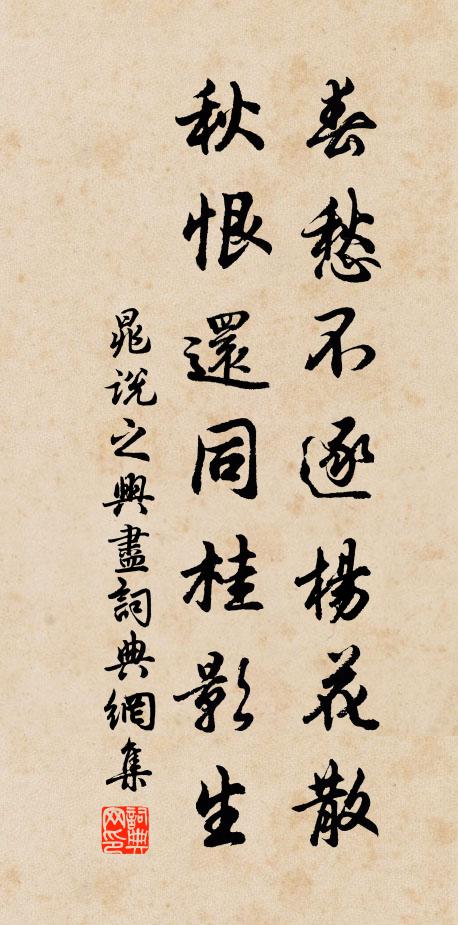 春愁不逐楊花散
秋恨還同桂影生
晁說之興盡詞典網集
詞典網印